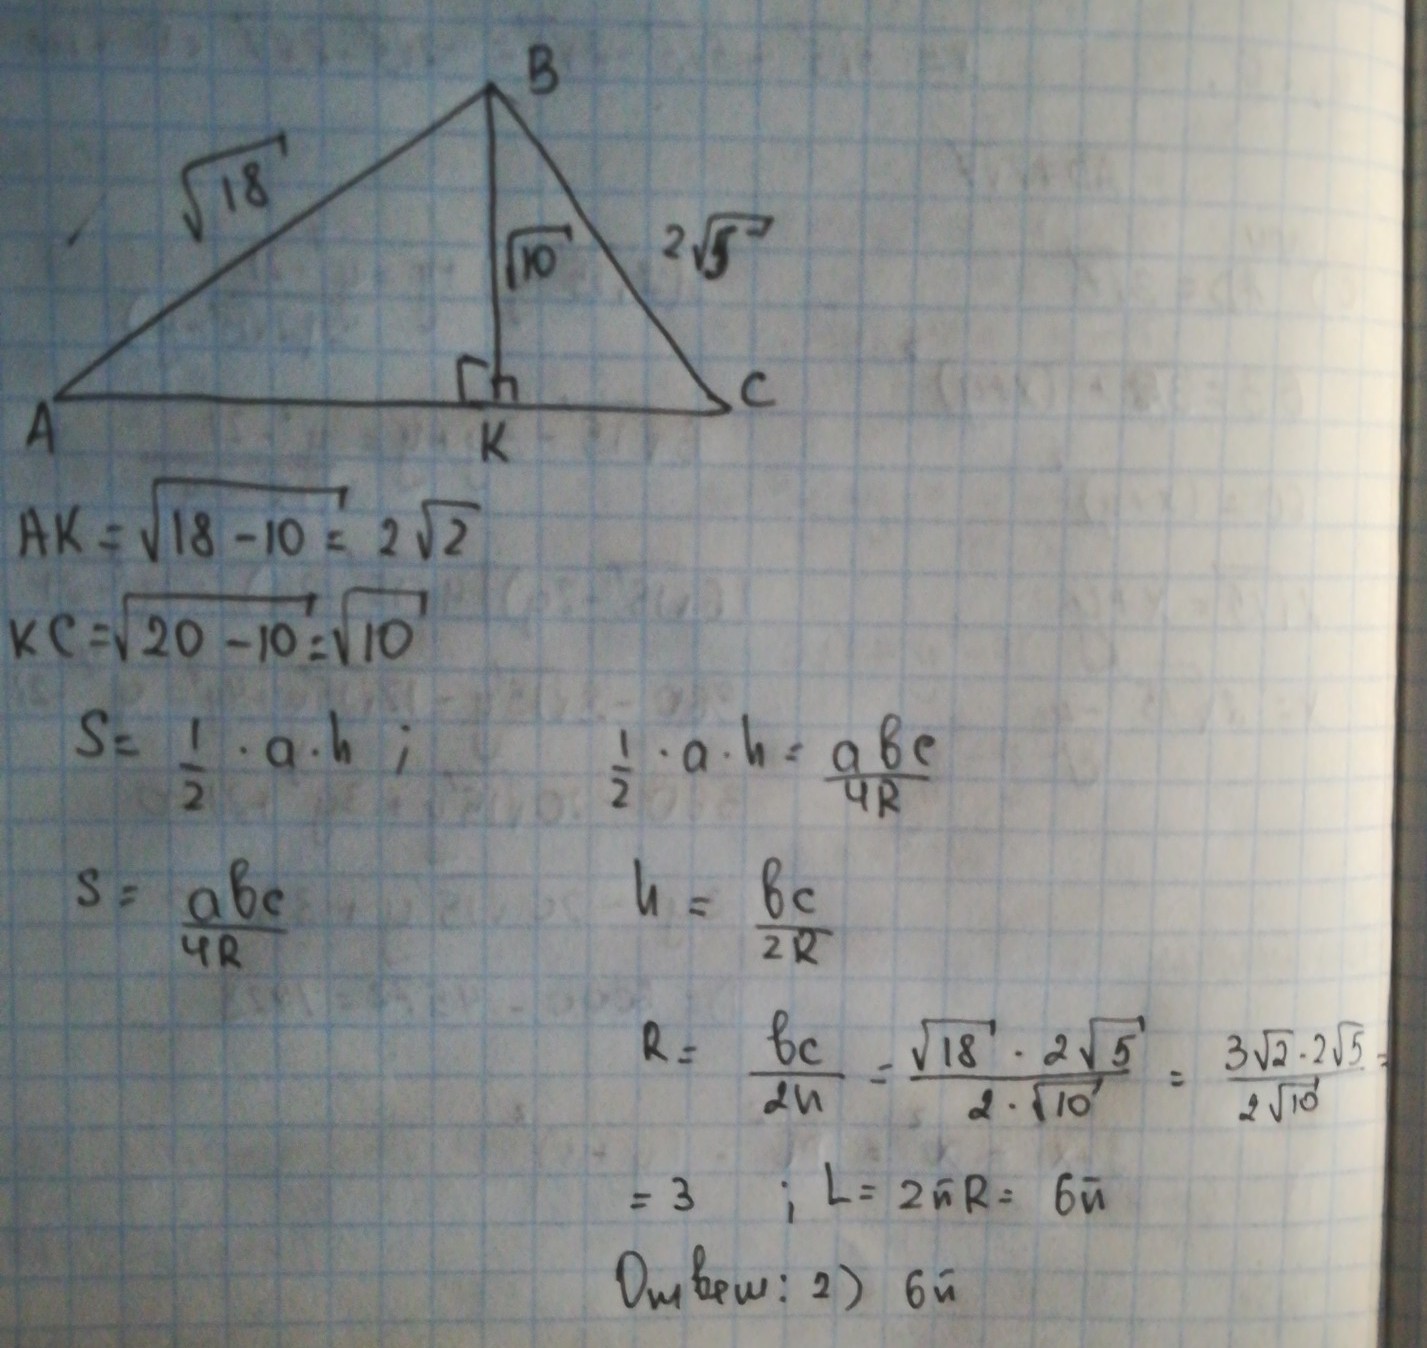 B
√18
√10
2√5
h
A
K
C
AK = √18 - 10 = 2√2
KC = √20 - 10 = √10
S = 1/2 · a · h ;
1/2 · a · h = abc/4R
S = abc/4R
h = bc/2R
R = bc/2h = √18 · 2√5 / 2 · √10 = 3√2 · 2√5 / 2√10 =
= 3 ; L = 2πR = 6π
Ответ: 2) 6π